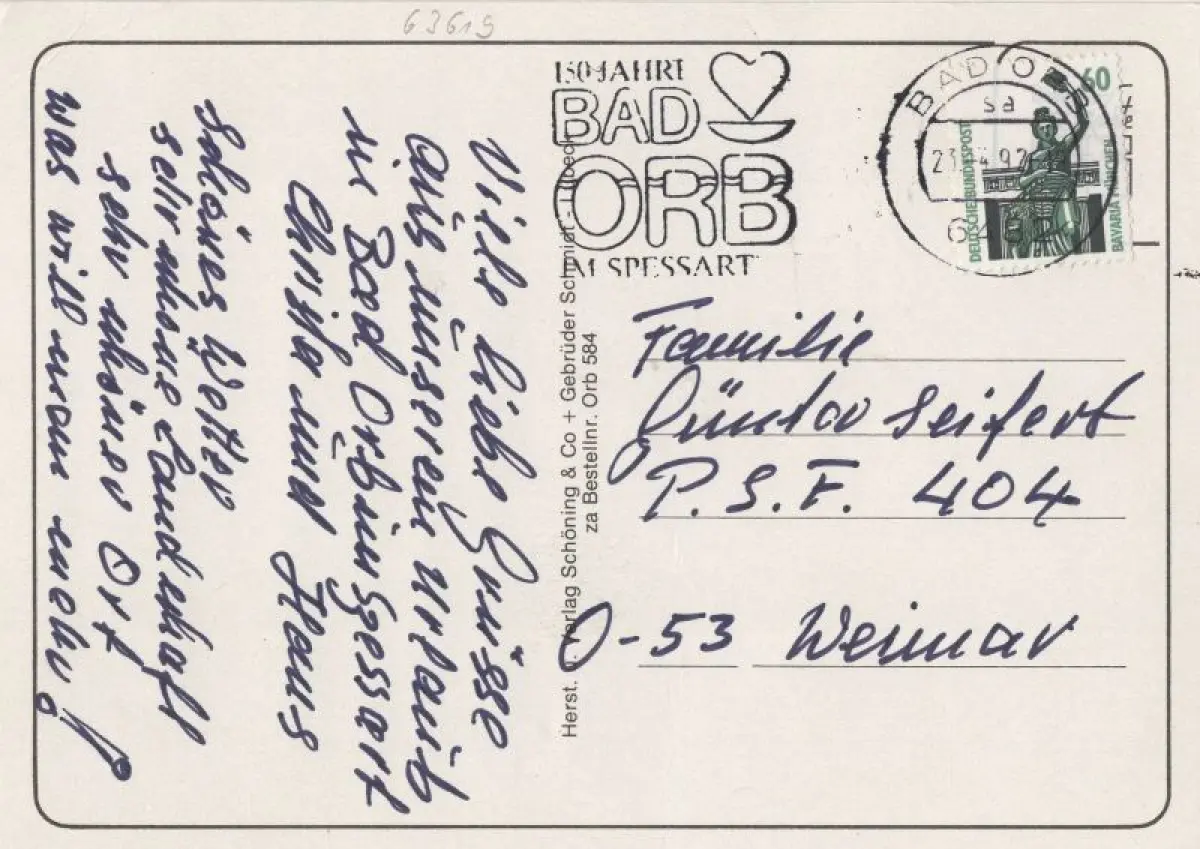 63619
150 JAHRE
BAD
ORB
IM SPESSART
BAD ORB
sa
60
DEUTSCHE BUNDESPOST
BAVARIA MÜNCHEN
Viele liebe Grüsse
aus unserem Urlaub
in Bad Orb im Spessart
Christa und Hans
Schönes Wetter
sehr schöne Landschaft
sehr schöner Ort
was will man mehr!
Herst. u. Verlag Schöning & Co + Gebrüder Schmidt - Lübeck
za Bestellnr. Orb 584
Familie
Günter Seifert
P.S.F. 404
O-53 Weimar